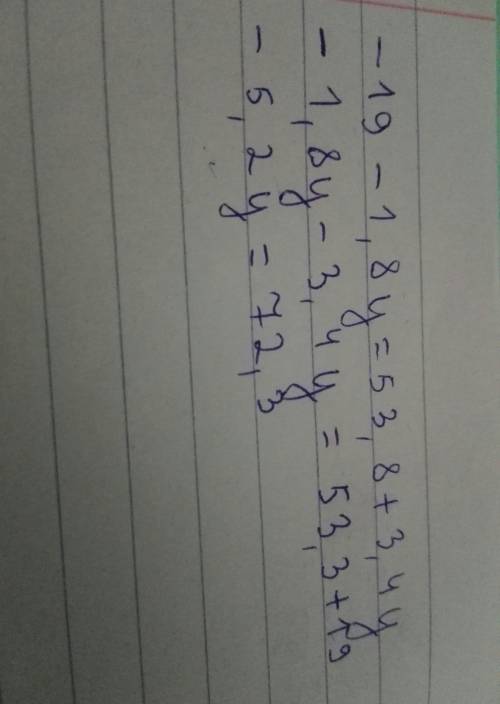 -19 - 1,8y = 53,8 + 3,4y
-1,8y - 3,4y = 53,3 + 19
-5,2y = 72,3